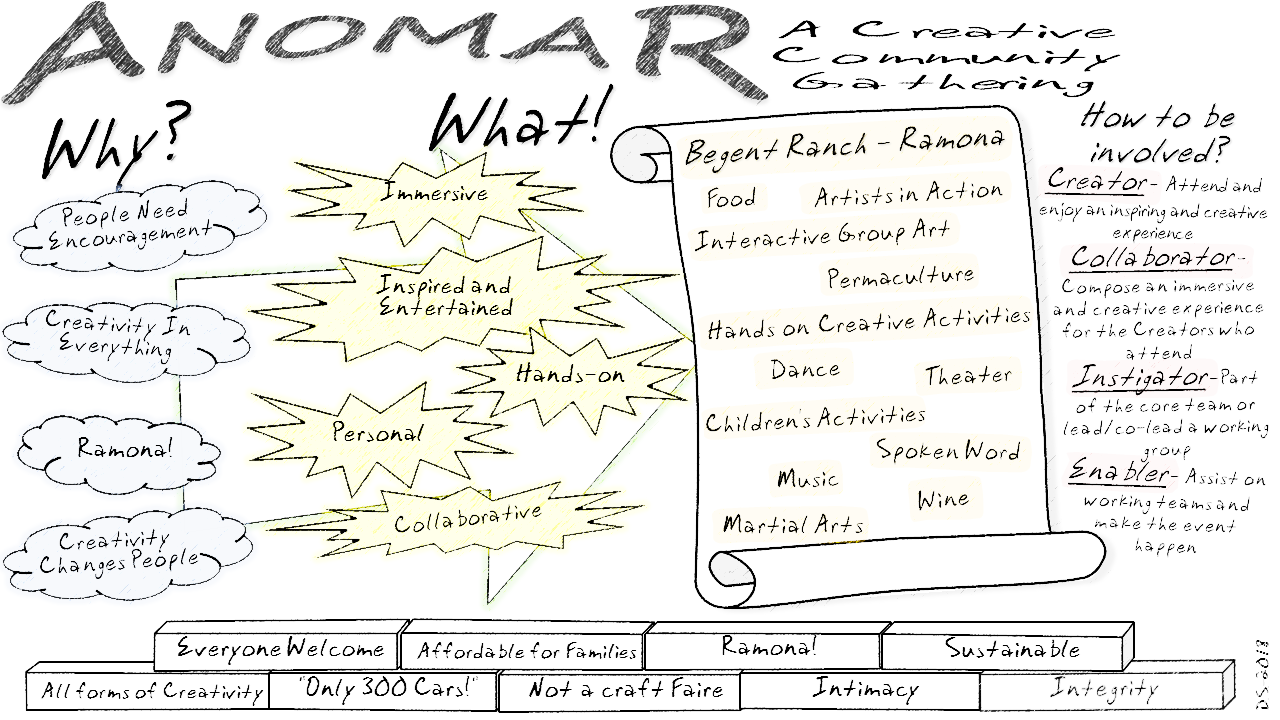 ANOMAR
A Creative
Community
Gathering
Why?
People Need
Encouragement
Creativity In
Everything
Ramona!
Creativity
Changes People
What!
Immersive
Inspired and
Entertained
Hands-on
Personal
Collaborative
Begent Ranch - Ramona
Food
Artists in Action
Interactive Group Art
Permaculture
Hands on Creative Activities
Dance
Theater
Children's Activities
Spoken Word
Music
Wine
Martial Arts
How to be
involved?
Creator - Attend and
enjoy an inspiring and creative
experience
Collaborator -
Compose an immersive
and creative experience
for the Creators who
attend
Instigator - Part
of the core team or
lead/co-lead a working
group
Enabler - Assist on
working teams and
make the event
happen
Everyone Welcome
Affordable for Families
Ramona!
Sustainable
All forms of Creativity
"Only 300 Cars!"
Not a craft Faire
Intimacy
Integrity